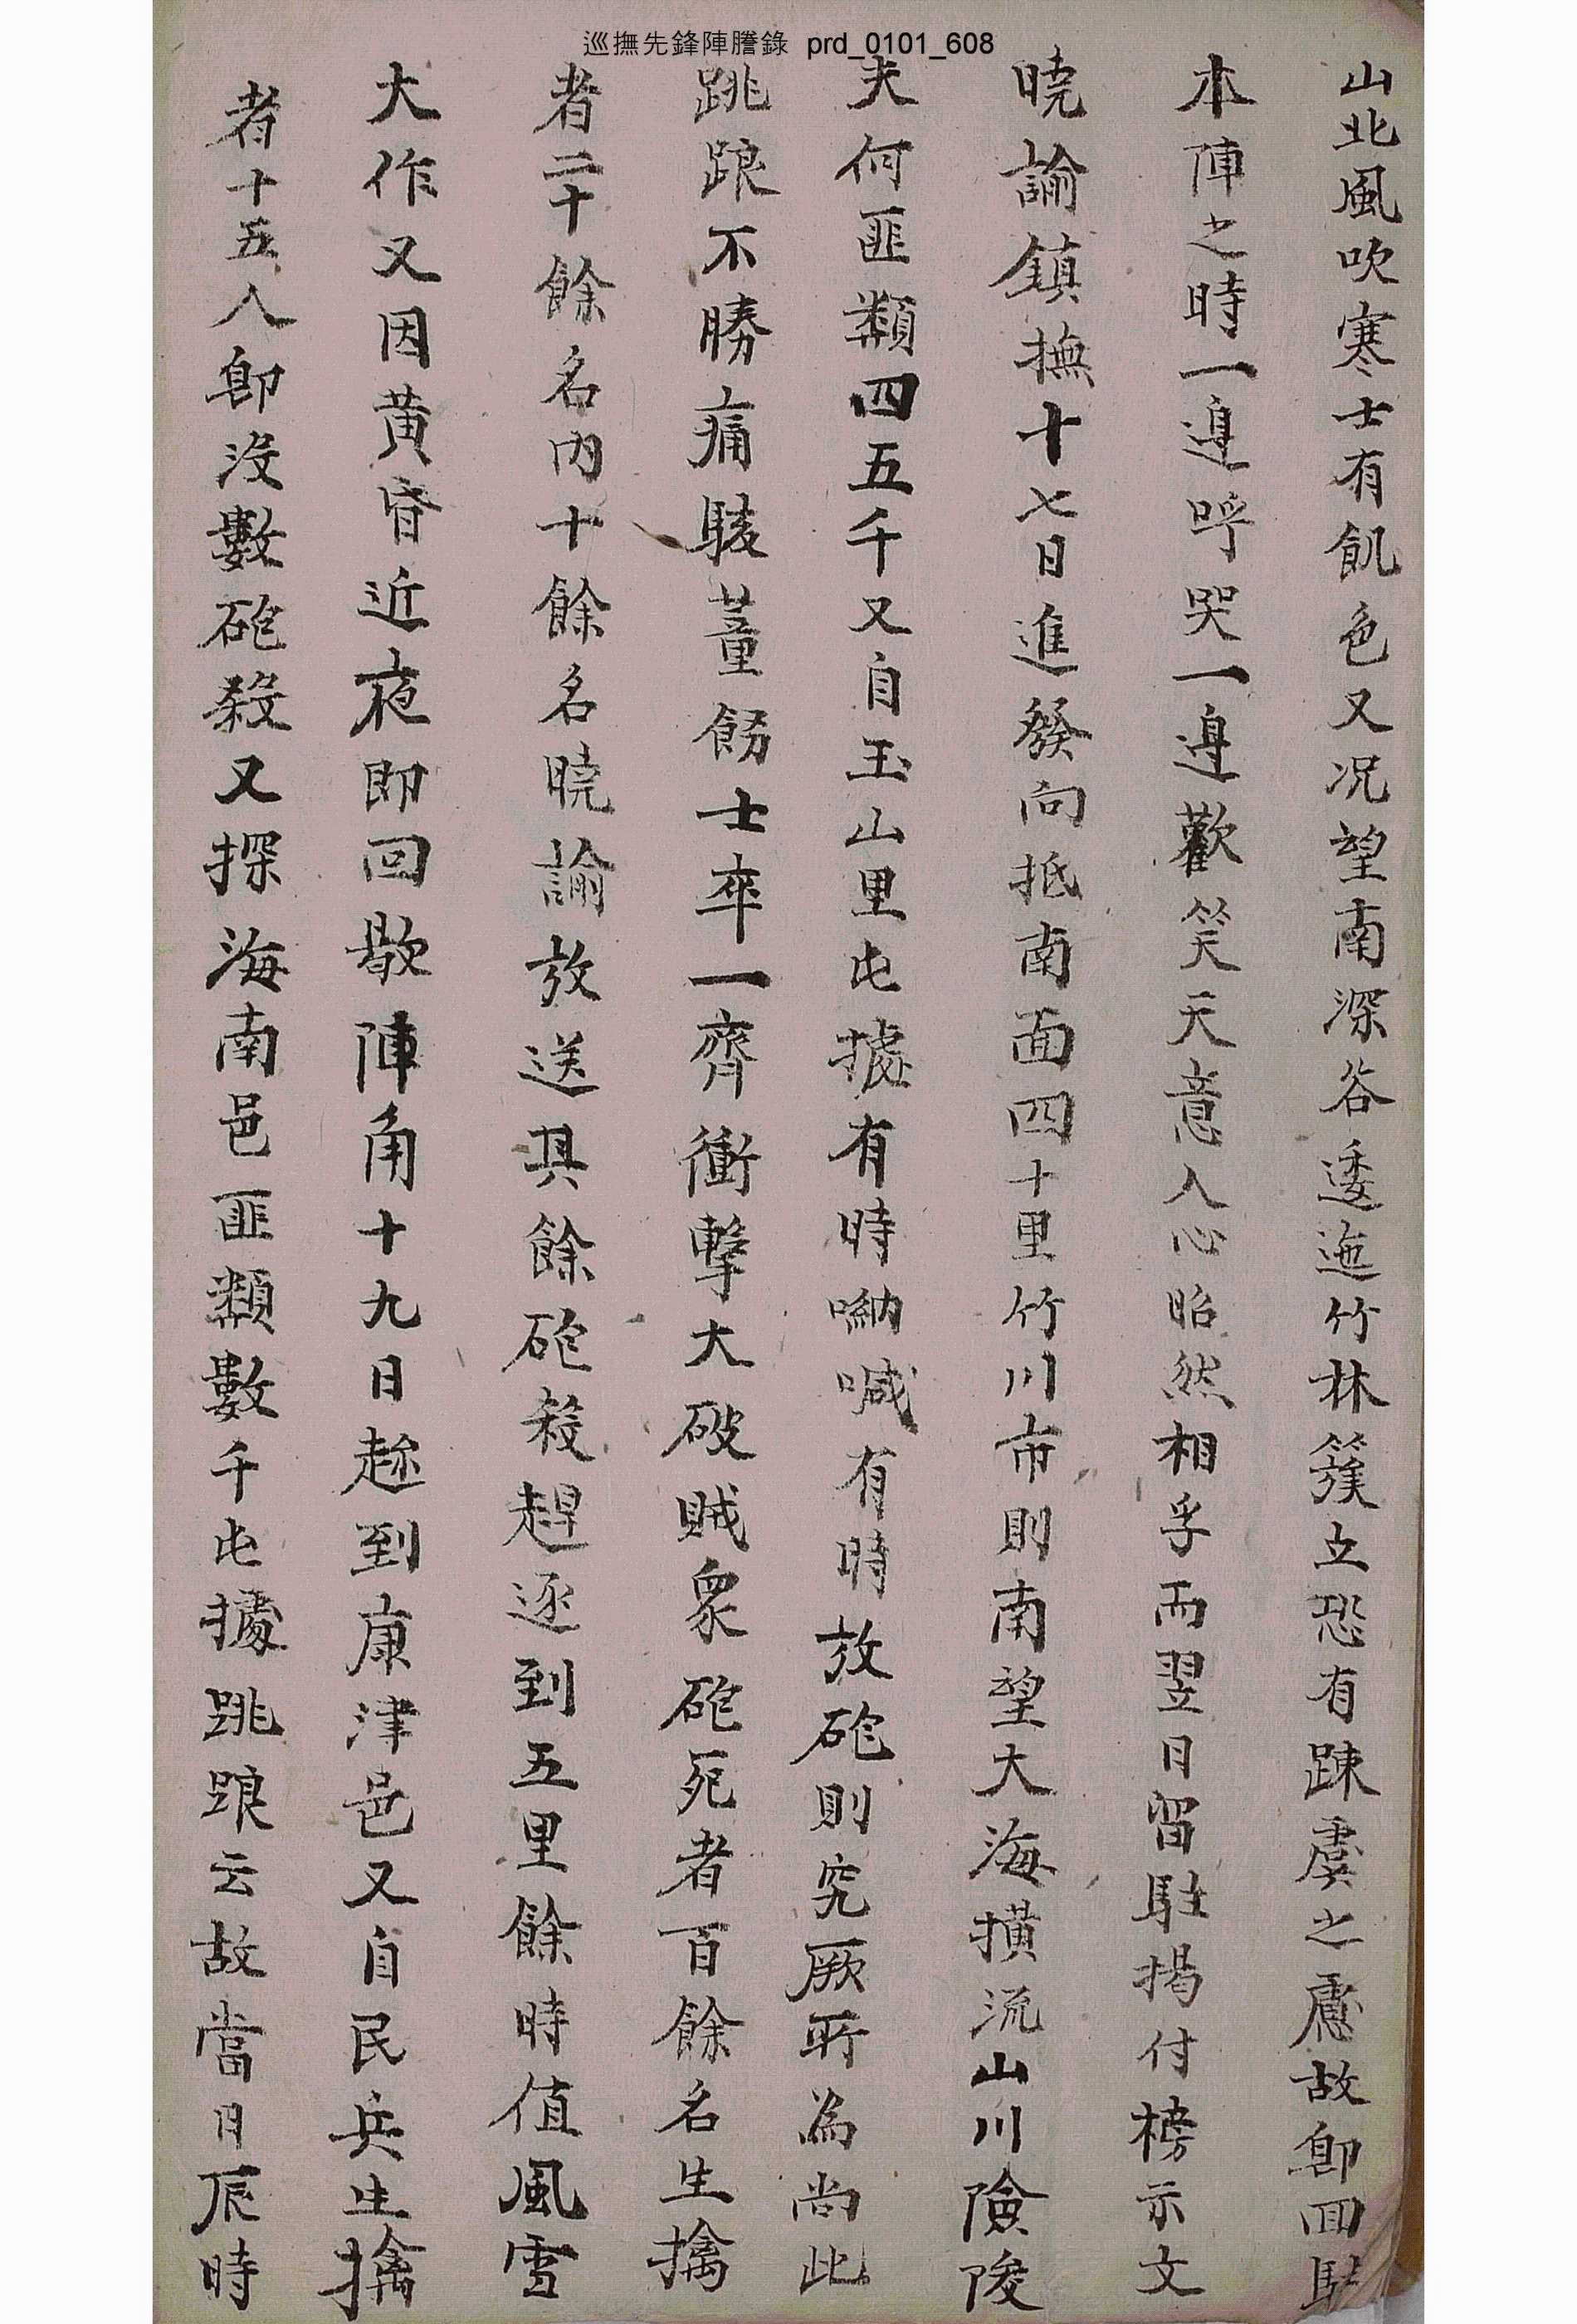 巡撫先鋒陣謄錄 prd_0101_608
山北風吹寒士有飢色又况望南深谷逶迤竹林簇立恐有踈虞之慮故卽回駐
本陣之時一邉呼哭一邉歡笑天意人心昭然相孚而翌日留駐揭付榜示文
曉諭鎮撫十七日進發向抵南面四十里竹川市則南望大海橫流山川險陵
夫何匪類四五千又自玉山里屯據有時吶喊有時放砲則究厥所為尚此
跳踉不勝痛駭董飭士卒一齊衝擊大破賊衆砲死者百餘名生擒
者二十餘名內十餘名曉諭放送其餘砲殺趕逐到五里餘時值風雪
大作又因黄昏近夜即回歇陣角十九日趂到康津邑又自民兵生擒
者十五人卽沒數砲殺又探海南邑匪類數千屯據跳踉云故當日辰時